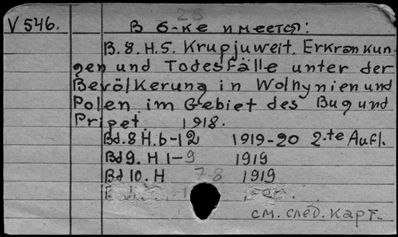 V 546. В б-ке имеется:
B. 8. H. 5. Krupjuweit. Erkrankun-
gen und Todesfälle unter der
Bevölkerung in Wolhynien und
Polen im Gebiet des Bug und
Pripet. 1918.
Bd. 8 H. 6-12 1919-20 2.te Aufl.
Bd 9. H 1-9 1919
Bd 10. H 7-8 1919
см. след. карт.